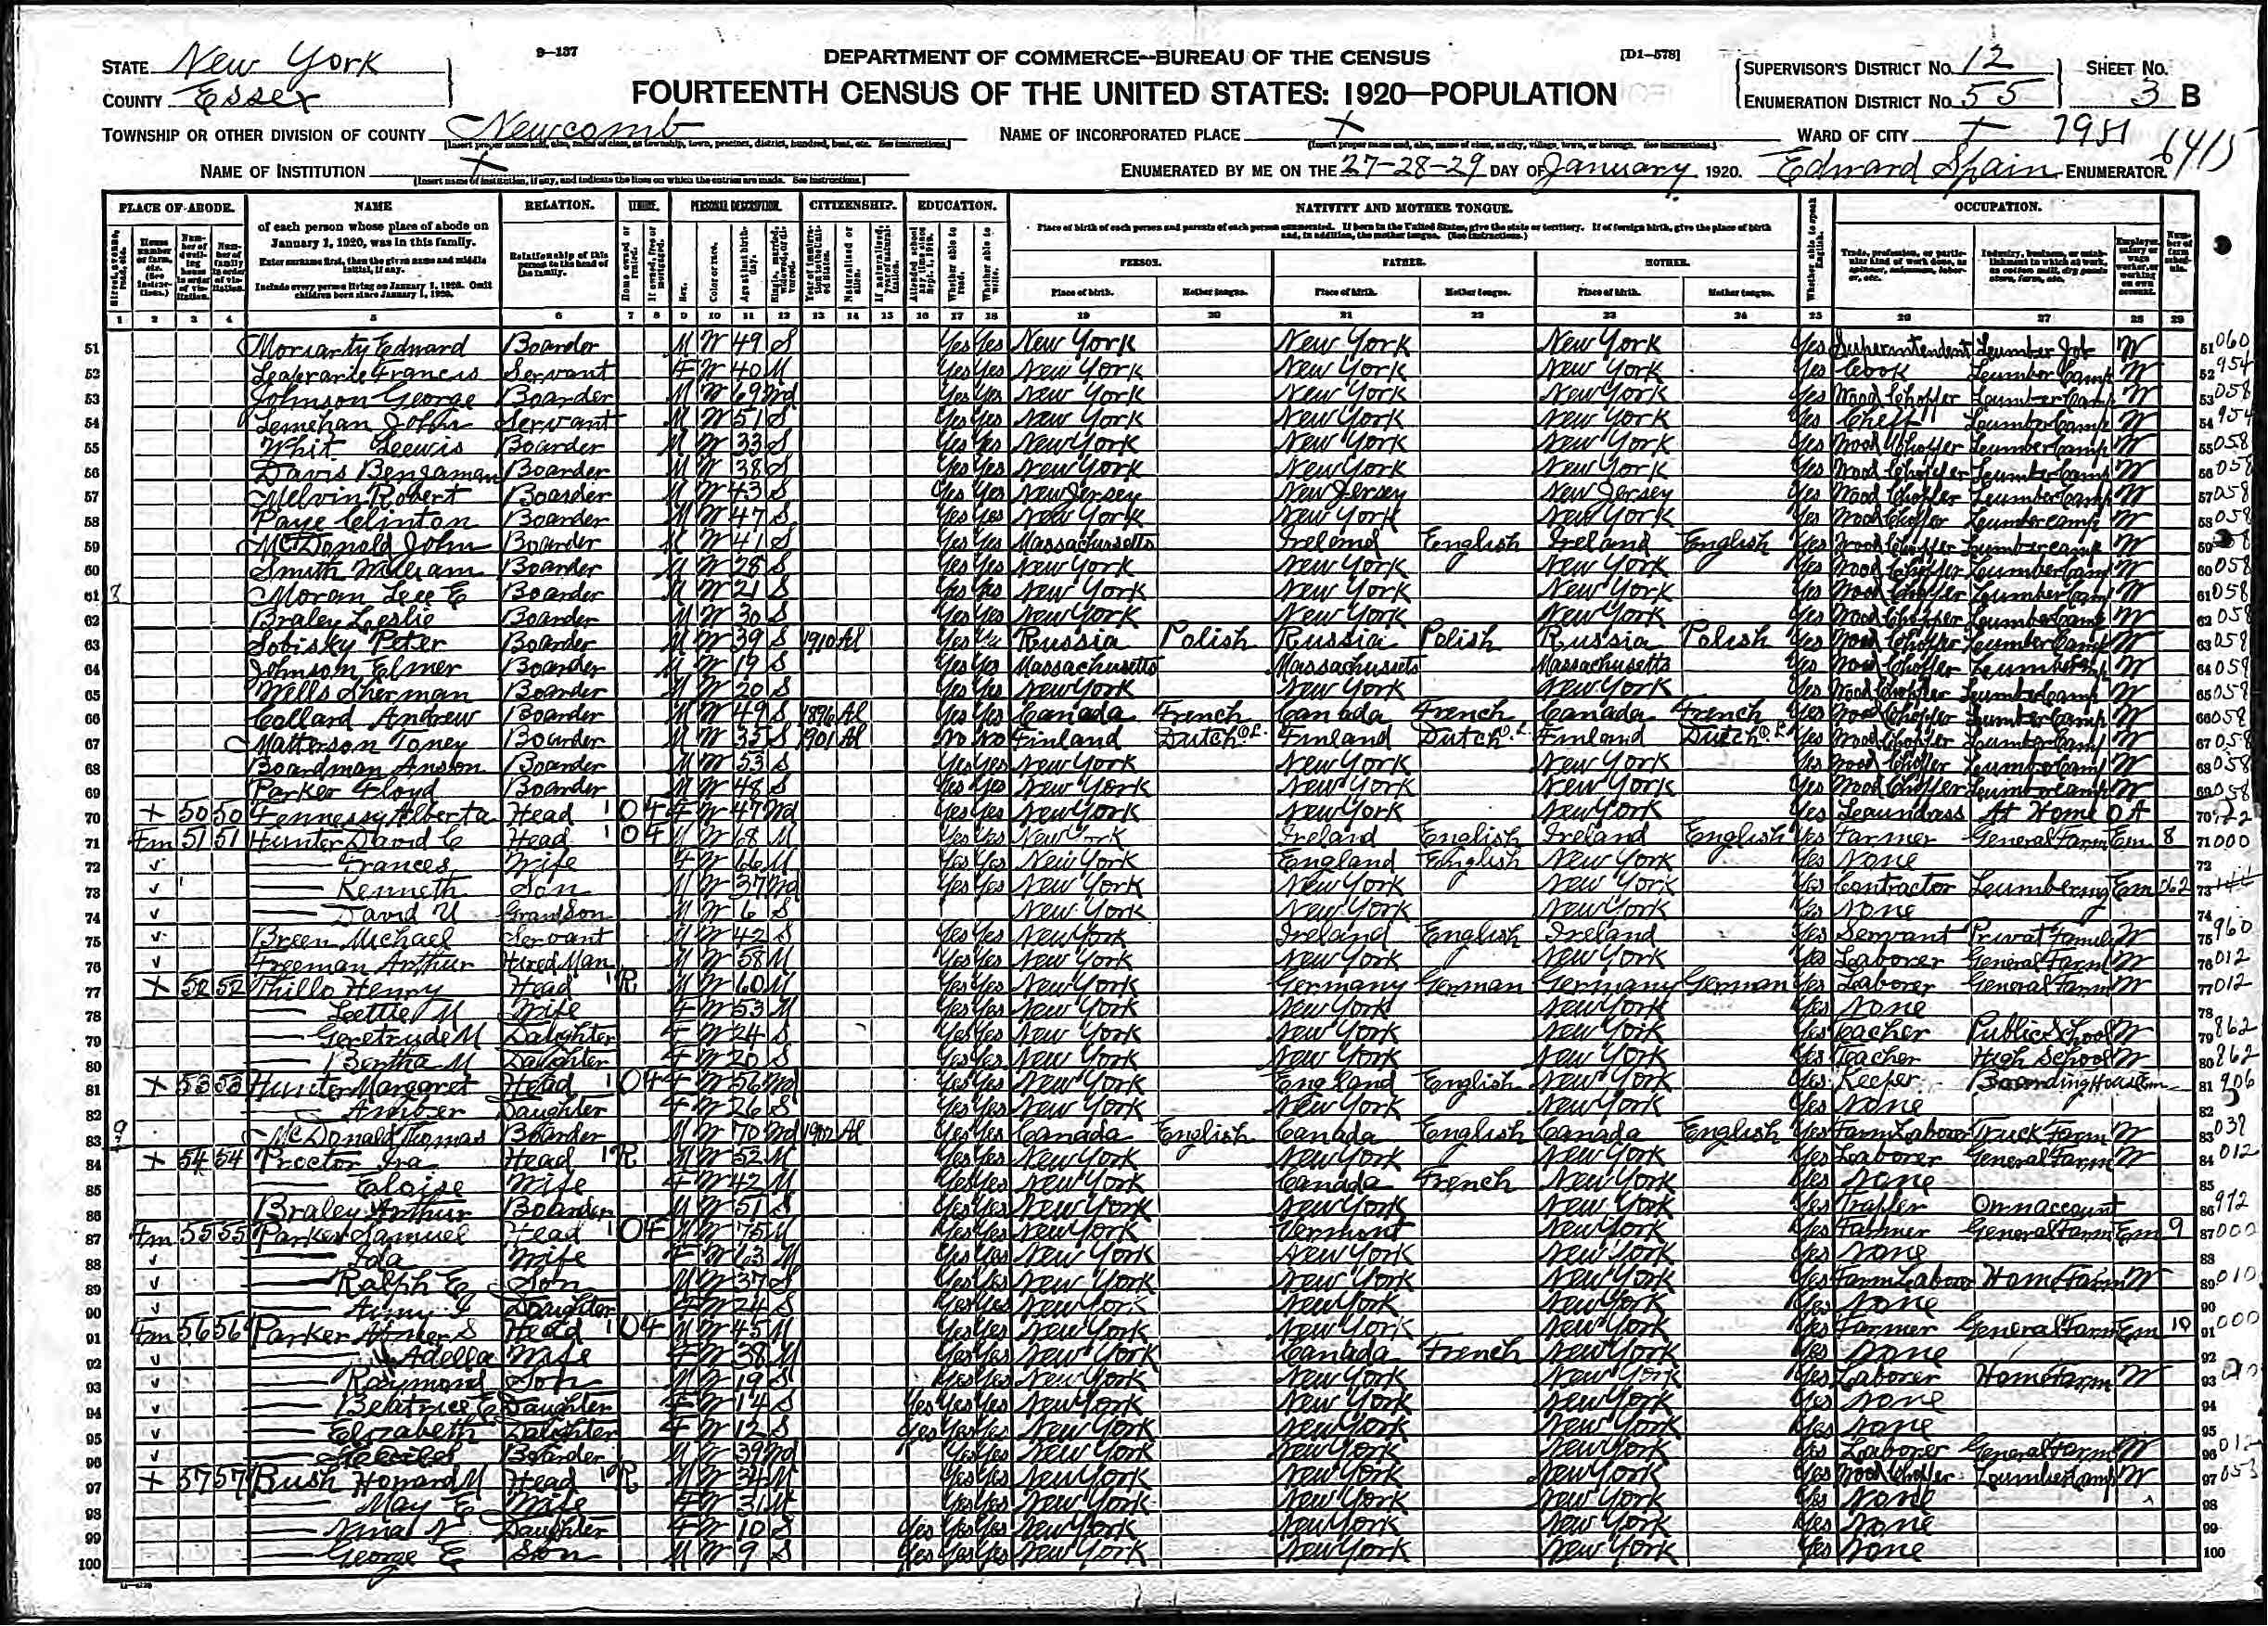 9-137
DEPARTMENT OF COMMERCE—BUREAU OF THE CENSUS
[D1-578]
STATE New York
COUNTY Essex
FOURTEENTH CENSUS OF THE UNITED STATES: 1920—POPULATION
SUPERVISOR'S DISTRICT NO. 12
ENUMERATION DISTRICT NO. 55
SHEET NO. 3 B
TOWNSHIP OR OTHER DIVISION OF COUNTY Newcomb
NAME OF INCORPORATED PLACE X
WARD OF CITY X
NAME OF INSTITUTION X
ENUMERATED BY ME ON THE 27-28-29 DAY OF January, 1920. Edward Spain ENUMERATOR.
PLACE OF ABODE. NAME RELATION. PERSONAL DESCRIPTION. CITIZENSHIP. EDUCATION. NATIVITY AND MOTHER TONGUE. OCCUPATION.
of each person whose place of abode on January 1, 1920, was in this family.
Enter surname first, then the given name and middle initial, if any.
Include every person living on January 1, 1920. Omit children born since January 1, 1920.
Relationship of this person to the head of the family.
PERSON. FATHER. MOTHER.
Place of birth. Mother tongue. Place of birth. Mother tongue. Place of birth. Mother tongue.
1 2 3 4 5 6 7 8 9 10 11 12 13 14 15 16 17 18 19 20 21 22 23 24 25 26 27 28 29
51 Moriarty Edward Boarder M W 49 S Yes Yes New York New York New York Yes Superintendent Lumber Job W 060
52 Francis Servant F W 40 M Yes Yes New York New York New York Yes Cook Lumber Camp W 954
53 Johnson George Boarder M W 69 Wd Yes Yes New York New York New York Yes Wood Chopper Lumber Camp W 058
54 Lenehan John Servant M W 51 S Yes Yes New York New York New York Yes Cheff Lumber Camp W 954
55 Whit Leewis Boarder M W 33 S Yes Yes New York New York New York Yes Wood Chopper Lumber Camp W 058
56 Davis Bengaman Boarder M W 38 S Yes Yes New York New York New York Yes Wood Chopper Lumber Camp W 058
57 Melvin Robert Boarder M W 43 S Yes Yes New Jersey New Jersey New Jersey Yes Wood Chopper Lumber Camp W 058
58 Paye Clinton Boarder M W 47 S Yes Yes New York New York New York Yes Wood Chopper Lumber Camp W 058
59 McDonald John Boarder M W 41 S Yes Yes Massachusetts Ireland English Ireland English Yes Wood Chopper Lumber Camp W
60 Smith William Boarder M W 28 S Yes Yes New York New York New York Yes Wood Chopper Lumber Camp W 058
61 Moran Lee E Boarder M W 21 S Yes Yes New York New York New York Yes Wood Chopper Lumber Camp W 058
62 Braley Leslie Boarder M W 30 S Yes Yes New York New York New York Yes Wood Chopper Lumber Camp W 058
63 Sobisky Peter Boarder M W 39 S 1910 Al Yes Russia Polish Russia Polish Russia Polish Yes Wood Chopper Lumber Camp W 058
64 Johnson Elmer Boarder M W 19 S Yes Yes Massachusetts Massachusetts Massachusetts Yes Wood Chopper Lumber Camp W 058
65 Wells Sherman Boarder M W 20 S Yes Yes New York New York New York Yes Wood Chopper Lumber Camp W 058
66 Collard Andrew Boarder M W 49 S 1896 Al Yes Yes Canada French Canada French Canada French Yes Wood Chopper Lumber Camp W 058
67 Matterson Toney Boarder M W 35 S 1901 Al No No Finland Dutch Finland Dutch Finland Dutch Yes Wood Chopper Lumber Camp W 058
68 Boardman Anson Boarder M W 53 S Yes Yes New York New York New York Yes Wood Chopper Lumber Camp W 058
69 Parker Floyd Boarder M W 48 S Yes Yes New York New York New York Yes Wood Chopper Lumber Camp W 058
70 X 50 50 Fennessy Alberta Head O F W 47 Wd Yes Yes New York New York New York Yes Laundrass At Home OA
71 Fm 51 51 Hunter David C Head O M W 68 M Yes Yes New York Ireland English Ireland English Yes Farmer General Farm Em 8 000
72 Frances Wife F W 66 M Yes Yes New York England English New York Yes None
73 Kenneth Son M W 37 Wd Yes Yes New York New York New York Yes Contractor Lumbering Em
74 David U GrandSon M W 6 S New York New York New York Yes None
75 Breen Michael Servant M W 42 S Yes Yes New York Ireland English Ireland Yes Servant Privat Family W 960
76 Freeman Arthur Hired Man M W 58 M Yes Yes New York New York New York Yes Laborer General Farm W 012
77 X 52 52 Thillo Henry Head R M W 60 M Yes Yes New York Germany German Germany German Yes Laborer General Farm W 012
78 Lettie M Wife F W 53 M Yes Yes New York New York New York Yes None
79 Geretrude M Daughter F W 24 S Yes Yes New York New York New York Yes Teacher Public School W 862
80 Bertha M Daughter F W 20 S Yes Yes New York New York New York Yes Teacher High School W 862
81 X 53 53 Hunter Margaret Head O F W 56 Wd Yes Yes New York England English New York Yes Keeper Boarding House Em 906
82 Amber Daughter F W 26 S Yes Yes New York New York New York Yes None
83 McDonald Thomas Boarder M W 70 Wd 1902 Al Yes Yes Canada English Canada English Canada English Yes Farm Laborer Truck Farm W
84 X 54 54 Proctor Ira Head R M W 52 M Yes Yes New York New York New York Yes Laborer General Farm W 012
85 Eloise Wife F W 42 M Yes Yes New York Canada French New York Yes None
86 Braley Arthur Boarder M W 51 S Yes Yes New York New York New York Yes Trapper Own account 972
87 Fm 55 55 Parker Samuel Head O M W 75 M Yes Yes New York Vermont New York Yes Farmer General Farm Em 9 000
88 Ida Wife F W 63 M Yes Yes New York New York New York Yes None
89 Ralph E Son M W 37 S Yes Yes New York New York New York Yes Farm Laborer Home Farm W 010
90 Daughter F W 24 S Yes Yes New York New York New York Yes None
91 Fm 56 56 Parker Head O M W 45 M Yes Yes New York New York New York Yes Farmer General Farm Em 10 000
92 Adella Wife F W 38 M Yes Yes New York Canada French New York Yes None
93 Raymond Son M W 19 S Yes Yes New York New York New York Yes Laborer Home Farm W
94 Beatrice E Daughter F W 14 S Yes Yes Yes New York New York New York Yes None
95 Elizabeth Daughter F W 12 S Yes Yes Yes New York New York New York Yes None
96 Boarder M W 39 Wd Yes Yes New York New York New York Yes Laborer General Farm W 012
97 X 57 57 Bush Howard M Head R M W 34 M Yes Yes New York New York New York Yes Wood Chopper Lumber Camp W
98 May E Wife F W 31 M Yes Yes New York New York New York Yes None
99 Nina N Daughter F W 10 S Yes Yes Yes New York New York New York Yes None
100 George E Son M W 9 S Yes Yes Yes New York New York New York Yes None